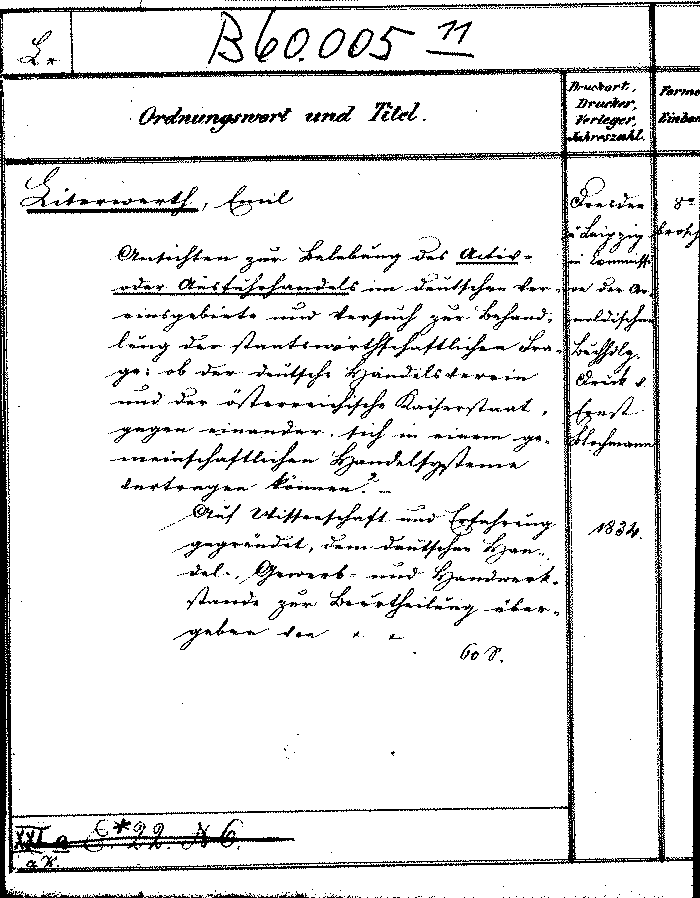 L.
B60.005 11
Ordnungswort und Titel.
Druckort,
Drucker,
Verleger,
Jahreszahl.
Forma
Einban
Literwerth, Emil
Ansichten zur Belebung des Activ-
oder Ausfuhrhandels im deutschen Ver-
einsgebiete und Versuch zur Behand-
lung der staatswirthschaftlichen Fra-
ge: ob der deutsche Handelsverein
und der österreichische Kaiserstaat,
gegen einander, sich in einem ge-
meinschaftlichen Handelssysteme
vertragen können? -
Auf Wissenschaft und Erfahrung
gegründet, dem deutschen Han-
del-, Gewerb- und Handwerk-
stande zur Beurtheilung über-
geben von
60 S.
Dresden
u Leipzig
in Commissi-
on der Ar-
noldischen
Buchhdlg.
Druck v
Ernst
Blochmann
1834.
8°
brosch
XXI a E*22. N 6.